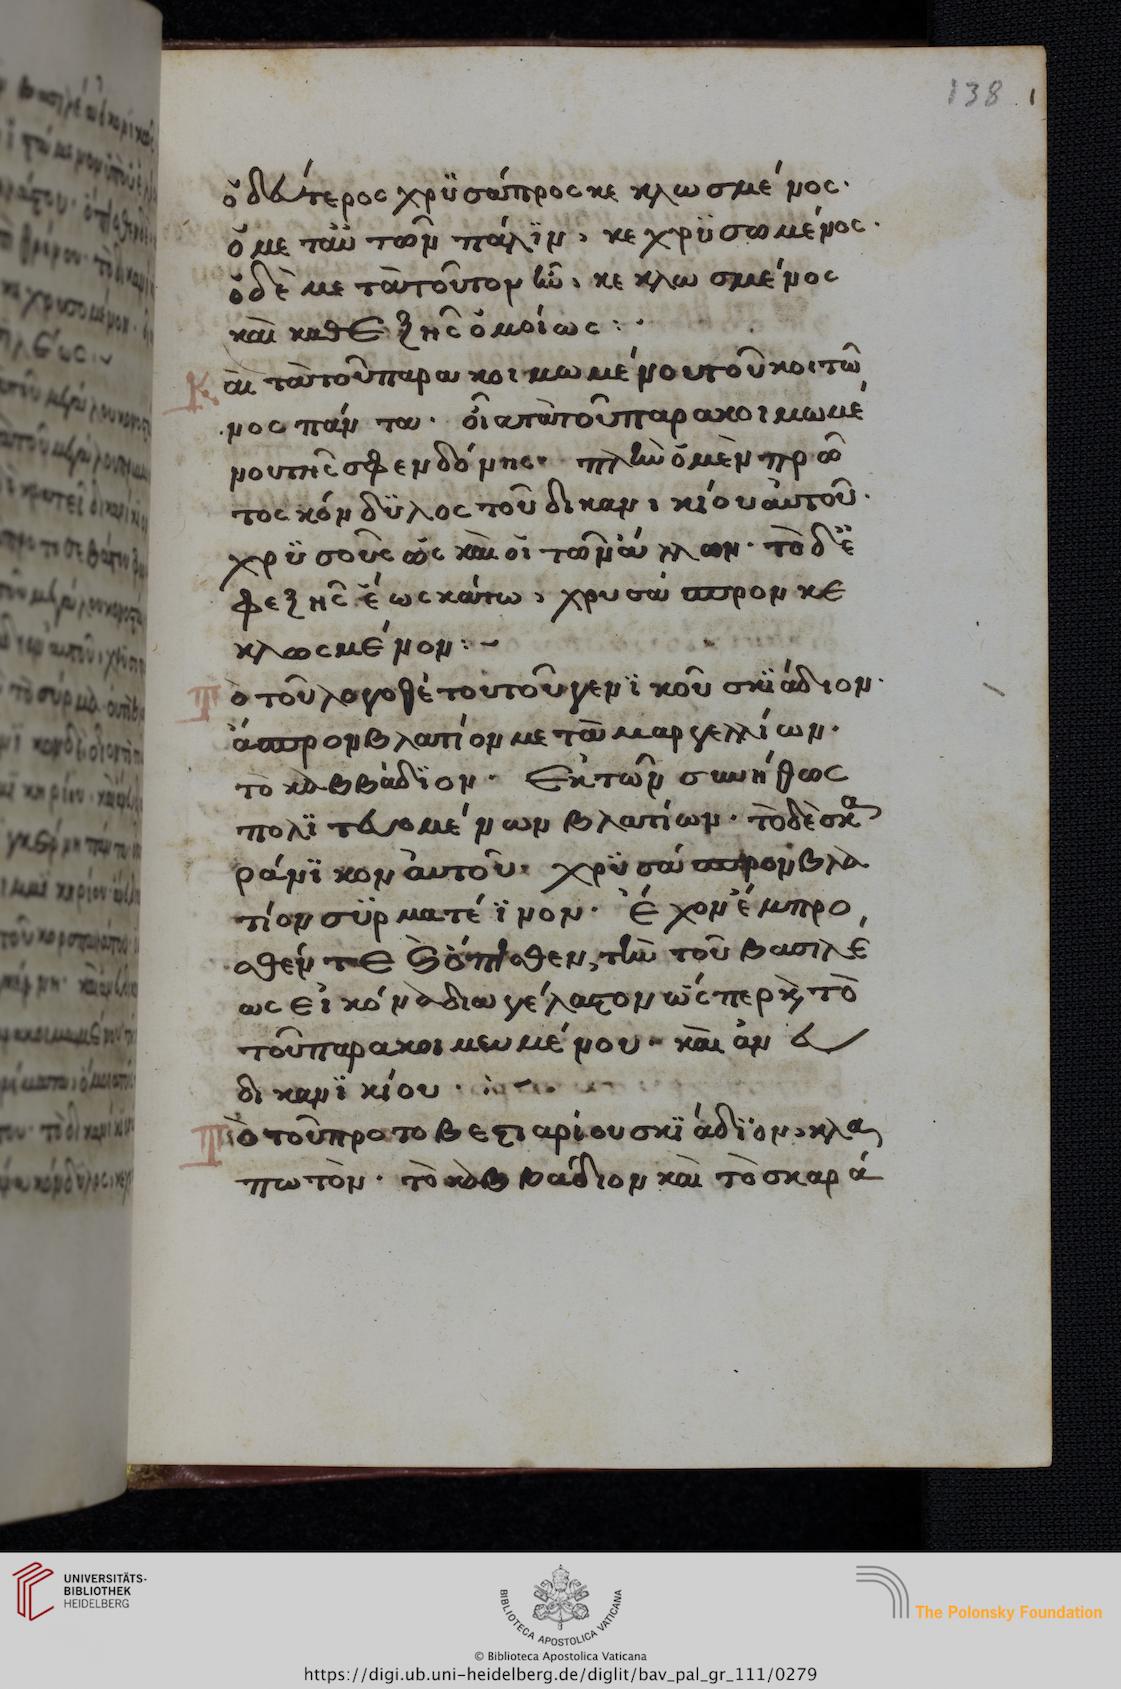 138
ὁ δεύτερος χρϋσάπρος κεκλωσμένος·
ὁ μεταῦτῶν πάλϊν, κεχρϋσωμένος·
ὁ δὲ μετὰ τοῦτον, κεκλωσμένος
καὶ καθεξῆς ὁμοίως :·
Καὶ τὰ τοῦ παρακοιμωμένου τοῦ κοιτῶ
νος πάντα· οἷα τὰ τοῦ παρακοιμωμέ
νου τῆς σφενδόνης· πλὴν ὁ μὲν πρῶ
τος κόνδϋλος τοῦ δικανικίου αὐτοῦ·
χρϋσοῦς ὡς καὶ οἱ τῶν ἄλλων· τὸ δ' ἐ
φεξῆς ἕως κάτω, χρυσάσπρον κε
κλωσμένον :~
Τὸ τοῦ λογοθέτου τοῦ γενϊκοῦ σκϊάδιον·
ἄσπρον βλατίον μετὰ μαργελλίων·
τὸ καββάδϊον· ἐκ τῶν συνήθως
πολϊτευομένων βλατίων· τὸ δὲ σκα
ράνϊκον αὐτοῦ· χρϋσάσπρον βλα
τίον σϋρματέϊνον· ἔχον ἔμπρο
σθέν τε καὶ ὄπισθεν, τὴν τοῦ βασιλέ
ως εἰκόνα διαγέλαστον ὥσπερ καὶ τὸ
τοῦ παρακοιμωμένου· καὶ ἄνευ
δικανϊκίου·
Τὸ τοῦ προτοβεστιαρίου σκϊάδϊον, κλα
πωτόν· τὸ καββάδιον καὶ τὸ σκαρά
UNIVERSITÄTS-
BIBLIOTHEK
HEIDELBERG
BIBLIOTECA APOSTOLICA VATICANA
The Polonsky Foundation
© Biblioteca Apostolica Vaticana
https://digi.ub.uni-heidelberg.de/diglit/bav_pal_gr_111/0279